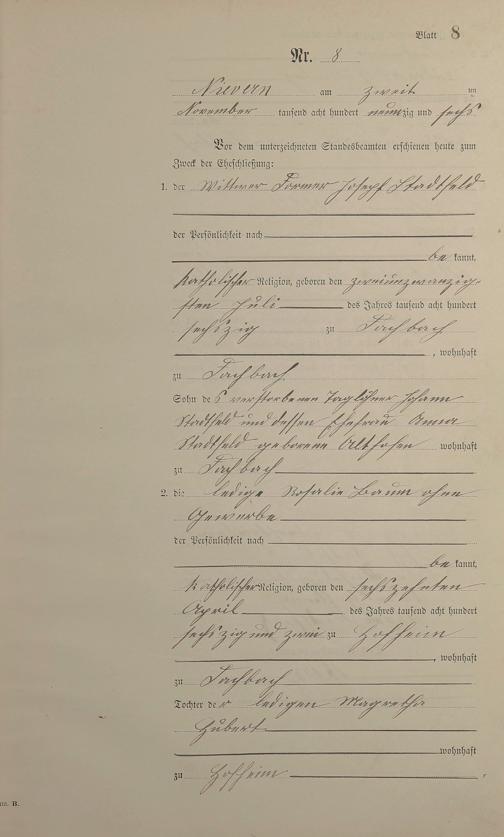 Blatt 8
Nr. 8
Nievern am zweiten
November tausend acht hundert neunzig und sechs
Vor dem unterzeichneten Standesbeamten erschienen heute zum
Zweck der Eheschließung:
1. der Wittwer Former Joseph Stadtfeld
der Persönlichkeit nach
be kannt,
katholischer Religion, geboren den zweiunzwanzig-
sten Juli des Jahres tausend acht hundert
sechszig zu Fachbach
, wohnhaft
zu Fachbach
Sohn des verstorbenen Taglöhner Johann
Stadtfeld und dessen Ehefrau Anna
Stadtfeld geborene Althofen wohnhaft
zu Fachbach
2. die ledige Rosalie Baum ohne
Gewerbe
der Persönlichkeit nach
be kannt,
katholischer Religion, geboren den sechszehnten
April des Jahres tausend acht hundert
sechszig und zwei zu Hofheim
, wohnhaft
zu Fachbach
Tochter der ledigen Magretha
Hubert
wohnhaft
zu Hofheim
B.